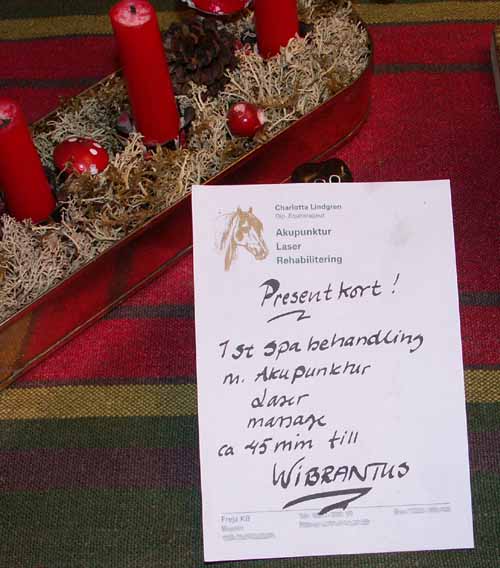 Charlotta Lindgren
Dip. Equiterapeut
Akupunktur
Laser
Rehabilitering
Presentkort!
1 st spabehandling
m. Akupunktur
Laser
massage
ca 45 min till
WIBRANTUS
Freja KB